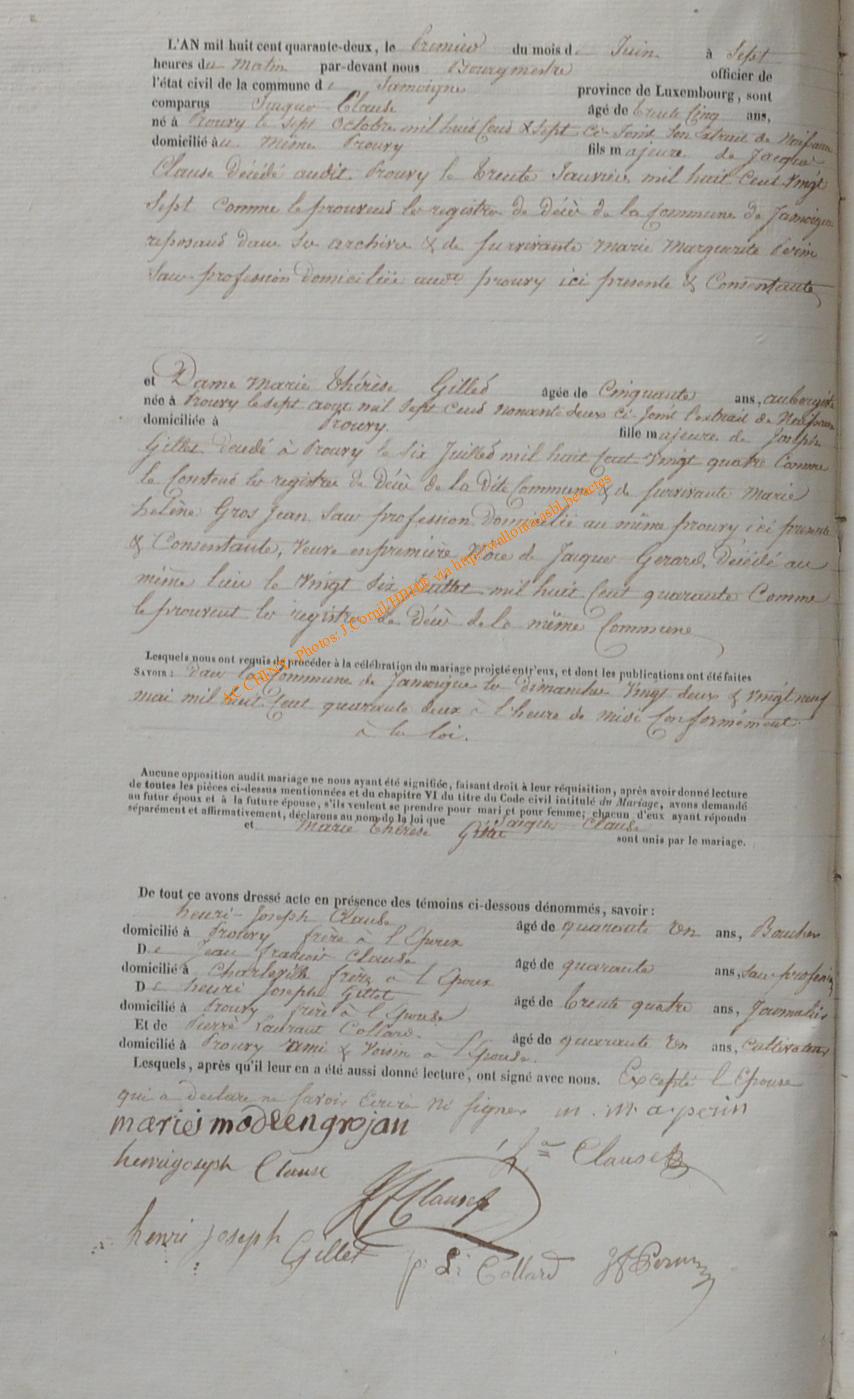 L'AN mil huit cent quarante-deux, le Premier du mois d e Juin à Sept
heures du Matin par-devant nous Bourgmestre officier de
l'état civil de la commune d e Jamoigne province de Luxembourg, sont
comparus Jacque Clause âgé de trente Cinq ans,
né à Prouvy le sept Octobre mil huit Cent & Sept ci-Joint Son Extrait de Naissance
domicilié au même Prouvy fils majeure de Jacque
Clause Décédé audit Prouvy le trente Janvier mil huit Cent Vingt
Sept comme le prouvent les registre de Décè de la Commune de Jamoigne
reposant dans Ses archives & de Survivante Marie Marguerite Perin
Sans profession domiciliée audit prouvy ici presente & Consentante
et Dame Marie Thérèse Gillet âgée de Cinquante ans, aubergiste
née à Prouvy le sept aout mil sept Cent nonante deux Ci-Joint l'extrait de Naissance
domiciliée à Prouvy. fille majeure de Joseph
Gillet Decedé à Prouvy le Six Juillet mil huit Cent Vingt quatre Comme
le Constate les registre de Décè de la dite Commune & de Survivante Marie
heléne Gros Jean Sans profession Domicilié au même prouvy ici presente
& Consentante, Veuve en première Noce de Jacque Gerard, Décédé au
même lieu le Vingt Six Juillet mil huit Cent quarante Comme
le prouvent les registre de Décè de la même Commune
Lesquels nous ont requis de procéder à la célébration du mariage projeté entr'eux, et dont les publications ont été faites
SAVOIR : dans la Commune de Jamoigne les dimanches Vingt deux & Vingt neuf
mai mil huit Cent quarante deux à l'heure de midi Conformément
à la loi.
Aucune opposition audit mariage ne nous ayant été signifiée, faisant droit à leur réquisition, après avoir donné lecture
de toutes les pièces ci-dessus mentionnées et du chapitre VI du titre du Code civil intitulé du Mariage, avons demandé
au futur époux et à la future épouse, s'ils veulent se prendre pour mari et pour femme; chacun d'eux ayant répondu
séparément et affirmativement, déclarons au nom de la loi que Jacque Clause
et Marie Thérèse Gillet sont unis par le mariage.
De tout ce avons dressé acte en présence des témoins ci-dessous dénommés, savoir :
henri-Joseph Clause âgé de quarante Un ans, Boucher
domicilié à Prouvy frère à l'Epoux
D e Jean François Clause âgé de quarante ans, sans profession
domicilié à Charleville frère à l'Epoux
D e henri Joseph Gillet âgé de trente quatre ans, Journalier
domicilié à Prouvy frère à l'Epouse
Et de Pierre Laurant Collard. âgé de quarante Un ans, Cultivateur
domicilié à Prouvy ami & Voisin à l'Epouse.
Lesquels, après qu'il leur en a été aussi donné lecture, ont signé avec nous. Excepté l'Epouse
qui a declare ne Savoir Ecrire Ni Signer m. m. a perin
marie modlengrojan
Clause
henrijoseph Clause
J F Clause
henri Joseph Gillet
p. L. Collard
AC CHINY, Photos: J.Cornil/HIHIF via http://wallonia.asbl.be/actes